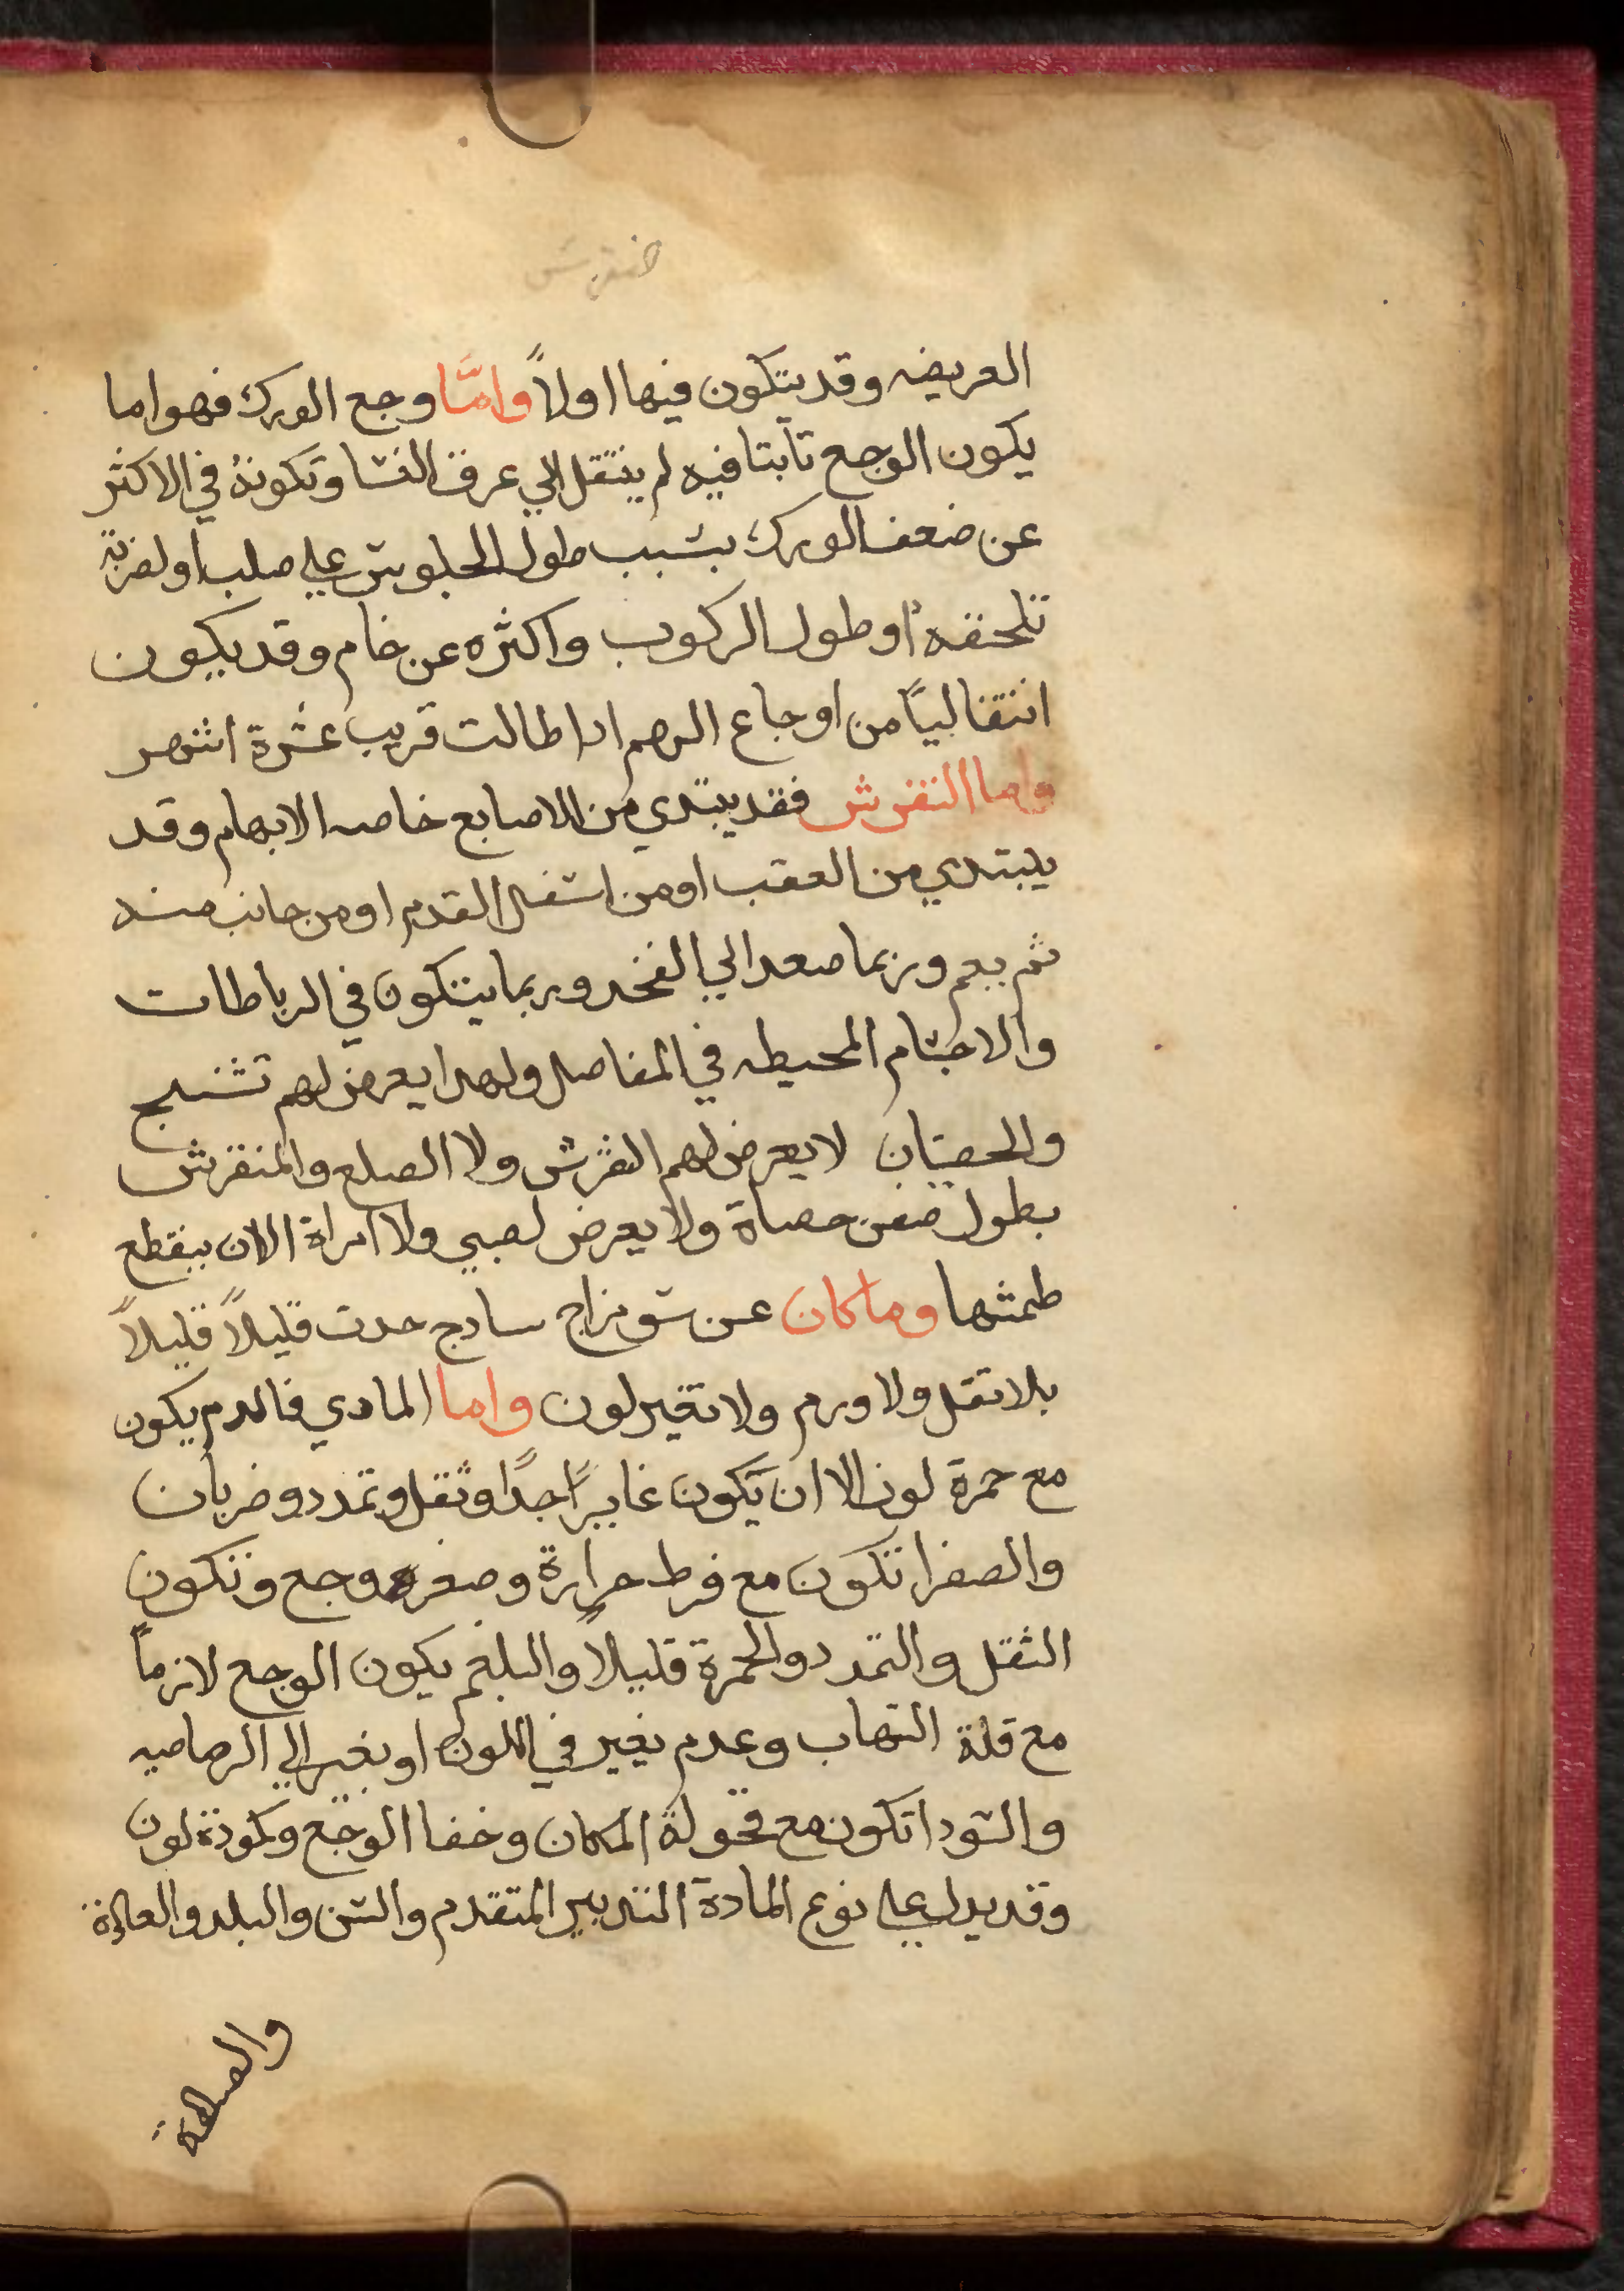 العريضه وقد يتكون فيها اولاً وامَّا وجع الورك فهو اما
يكون الوجع تابتا فيه لم ينتقل الي عرق النسا وتكونهُ في الاكثر
عن ضعف الورك بسبب طول الجلوس علي صلب او لضربة
تلحقه او طول الركوب واكثره عن خام وقد يكون
انتقالياً من اوجاع الرحم ادا طالت قريب عشرة اشهر
واما النقرس فقد يبتدي من الاصابع خاصه الابهام وقد
يبتدي من العقب او من اسفل القدم او من جانب منه
ثم يعم وربما صعد الي الفخد وربما يتكون في الرباطات
والاجسام المحيطه في المفاصل ولهدا يعرض لهم تشنج
والخصيان لا يعرض لهم النقرس ولا الصلع والمنقرس
بطول حصاة ولا يعرض لصبي ولا امراة الا ان ينقطع
طمثها وما كان عن سو مزاج سادج حدت قليلاً قليلاً
بلا تقل ولا ورم ولا تغير لون واما المادي فالدم يكون
مع حمرة لون الا ان يكون غايراً جداً وثقل وتمدد وضربان
والصفرا تكون مع فرط حرارة وصفره ووجع وتكون
الثقل والتمدد والحمرة قليلاً والبلغم يكون الوجع لازماً
مع قلة التهاب وعدم تغير في اللون او تغير الي الرصاصيه
والسودا تكون مع قحولة المكان وخفا الوجع وكمودة لون
وقد يدل علي نوع المادة التدبير المتقدم والسن والبلد والعادة
والصناعة